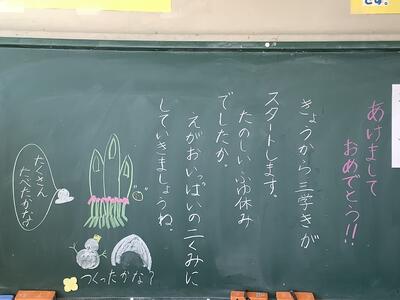 です。
あけまして
おめでとう!!
きょうから三学きが
スタートします。
たのしいふゆ休み
でしたか。
えがおいっぱいの二くみに
していきましょうね。
たくさん
たべたかな?
つくったかな?